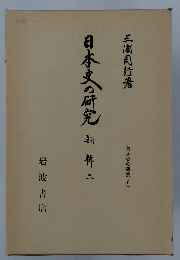 三浦周行著
日本史の研究 新輯二
岩波書店